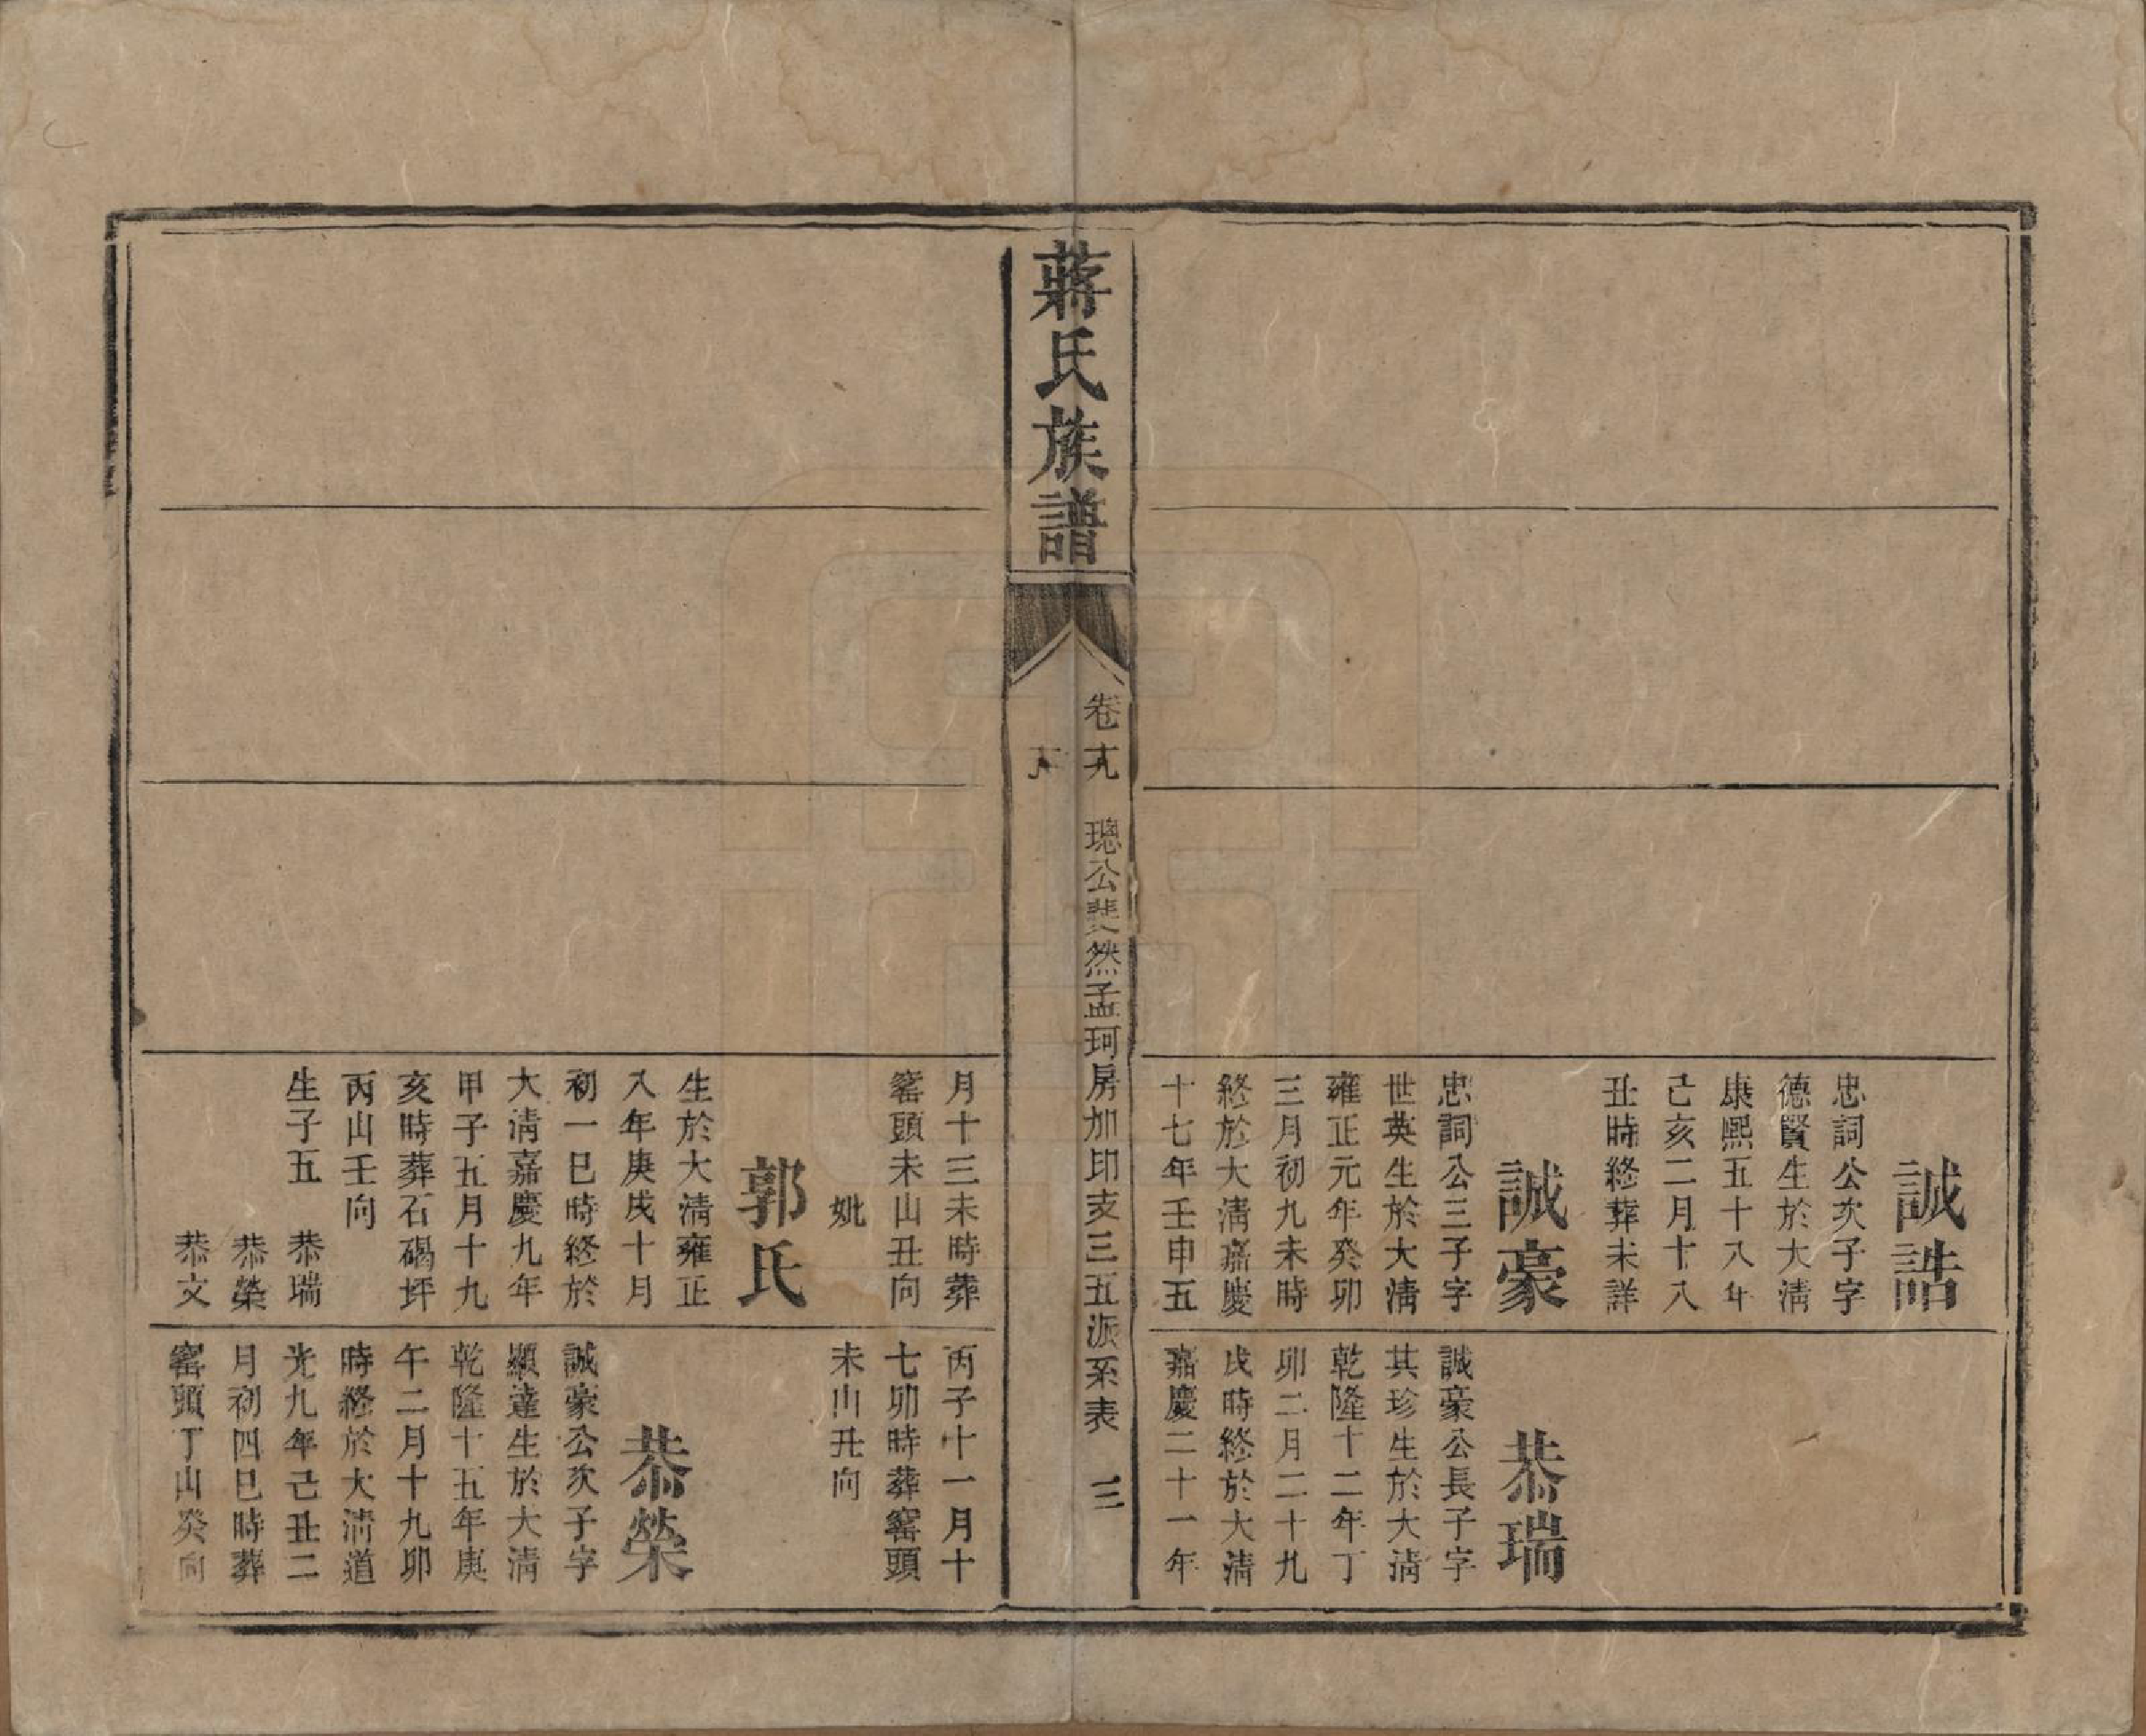 誠誥
忠詞公次子字
德賢生於大清
康熙五十八年
己亥二月十八
丑時終葬未詳
誠豪
忠詞公三子字
世英生於大清
雍正元年癸卯
三月初九未時
終於大清嘉慶
十七年壬申五
恭瑞
誠豪公長子字
其珍生於大清
乾隆十二年丁
卯二月二十九
戌時終於大清
嘉慶二十一年
蔣氏族譜
卷十九
下
璁公斐然孟珂房加印支三五派系表
三
月十三未時葬
窰頭未山丑向
妣
郭氏
生於大清雍正
八年庚戌十月
初一巳時終於
大清嘉慶九年
甲子五月十九
亥時葬石碣坪
丙山壬向
生子五 恭瑞
恭榮
恭文
丙子十一月十
七卯時葬窰頭
未山丑向
恭榮
誠豪公次子字
顯達生於大清
乾隆十五年庚
午二月十九卯
時終於大清道
光九年己丑二
月初四巳時葬
窰頭丁山癸向